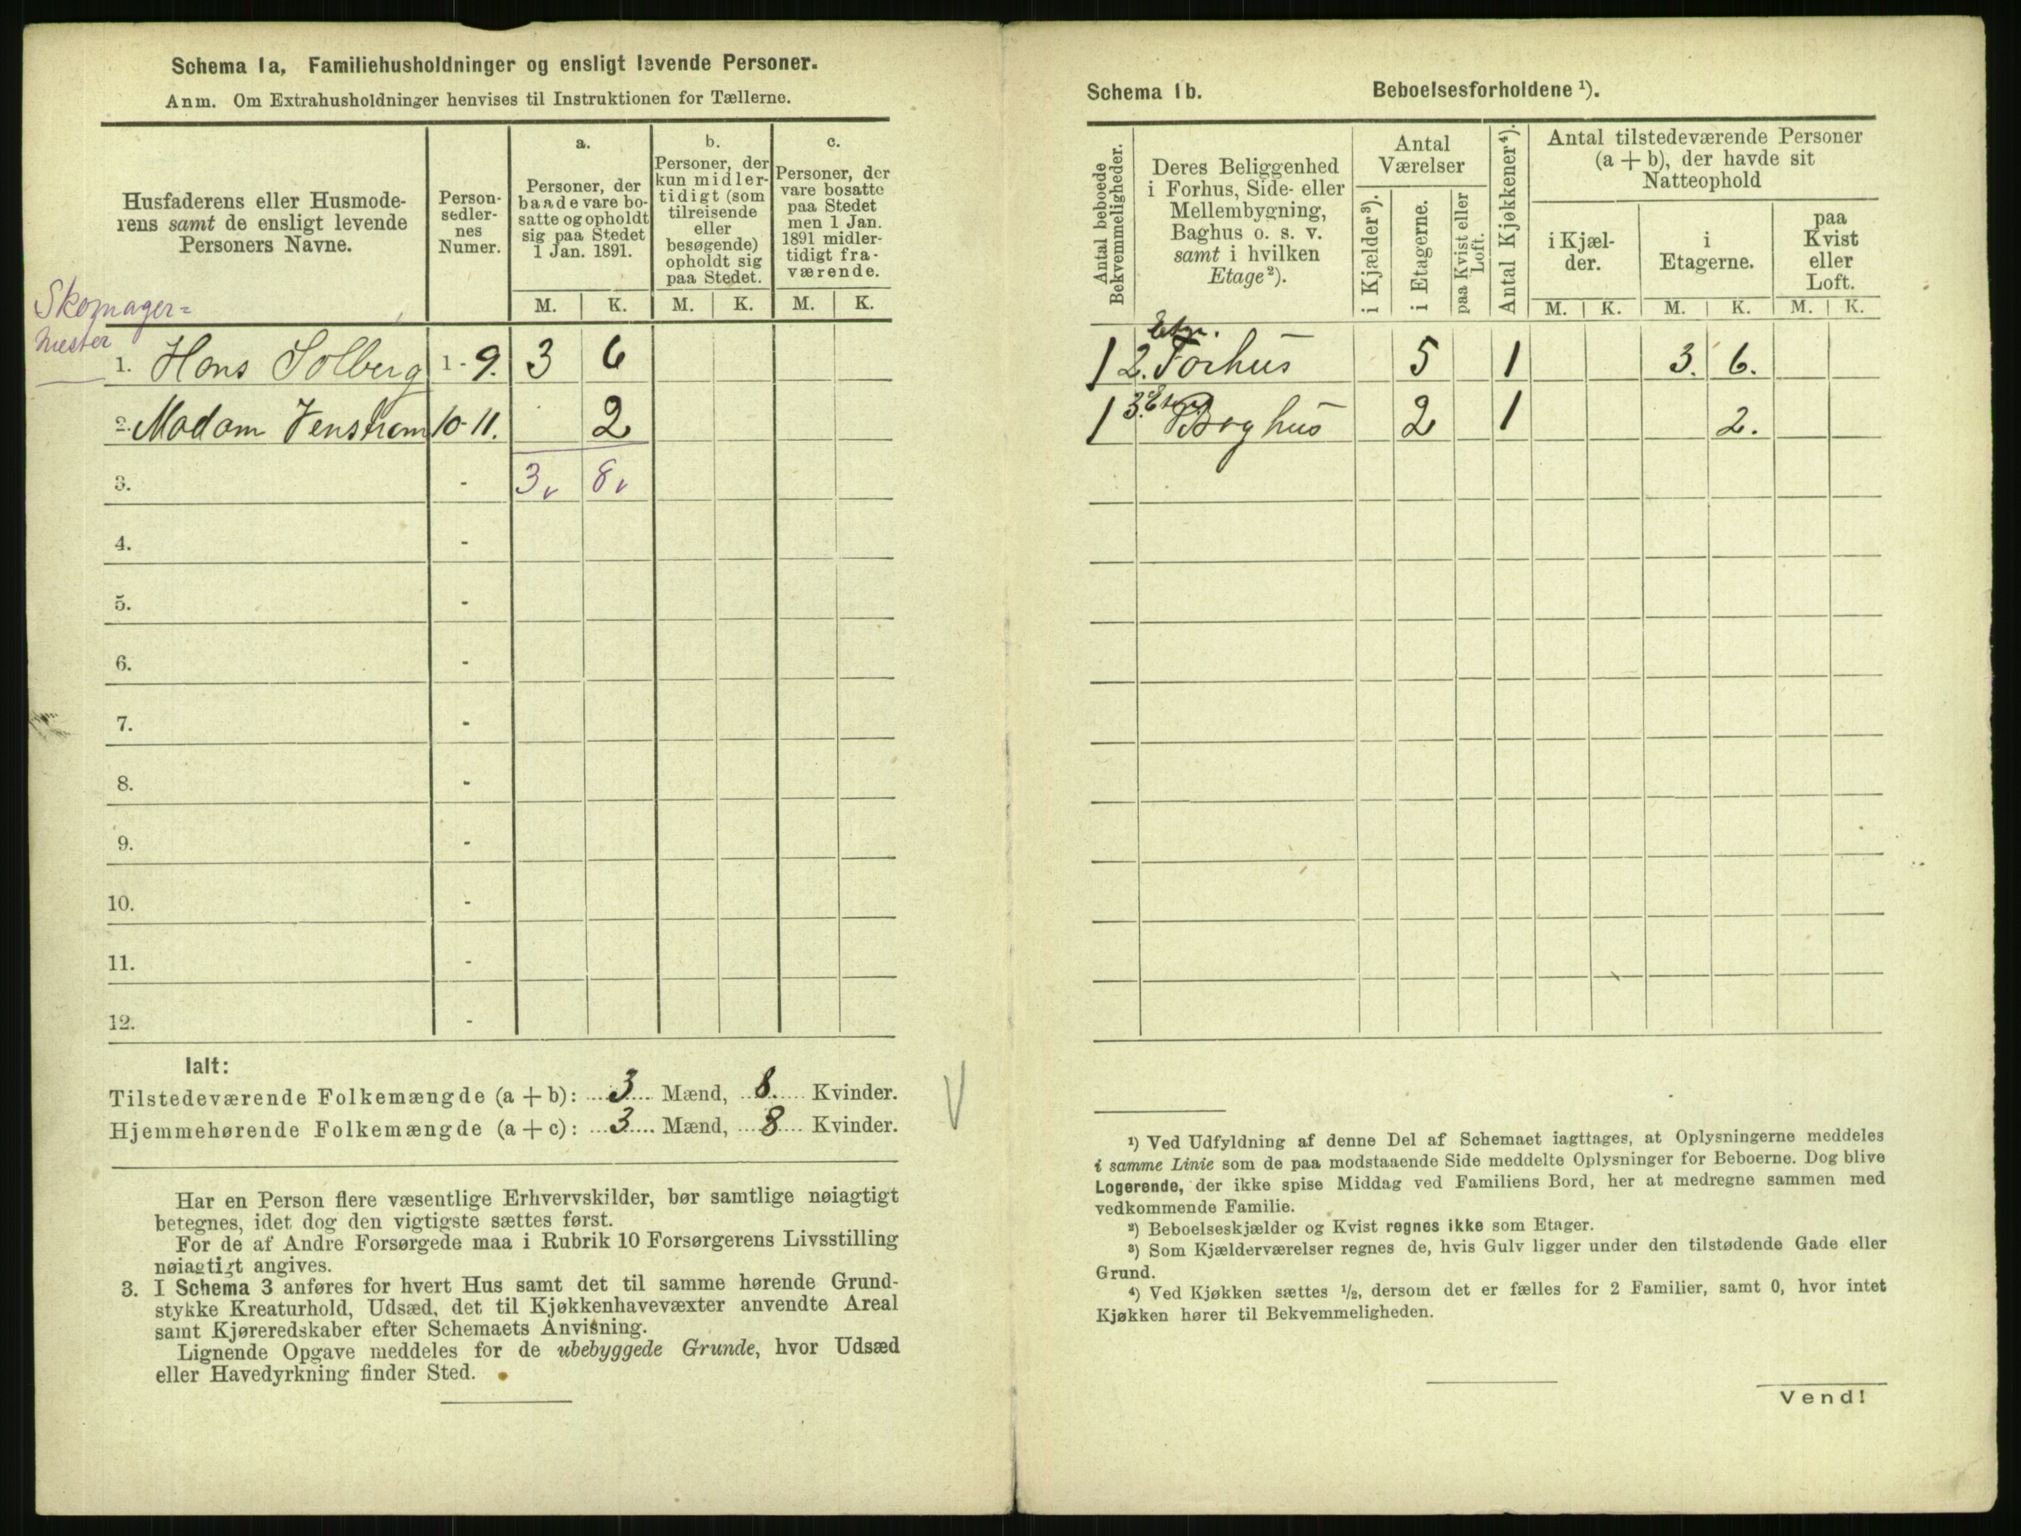 Schema 1a, Familiehusholdninger og ensligt levende Personer.
Anm. Om Extrahusholdninger henvises til Instruktionen for Tællerne.
Husfaderens eller Husmode-
rens samt de ensligt levende
Personers Navne.
Person-
sedler-
nes
Numer.
a.
Personer, der
baade vare bo-
satte og opholdt
sig paa Stedet
1 Jan. 1891.
b.
Personer, der
kun midler-
tidigt (som
tilreisende
eller
besøgende)
opholdt sig
paa Stedet.
c.
Personer, der
vare bosatte
paa Stedet
men 1 Jan.
1891 midler-
tidigt fra-
værende.
M. K. M. K. M. K.
Skomager=
mester
1. Hans Solberg 1-9. 3 6
2. Madam Venstrøm 10-11. 2
3. - 3 8
4. -
5. -
6. -
7. -
8. -
9. -
10. -
11. -
12. -
Ialt:
Tilstedeværende Folkemængde (a + b): 3 Mænd, 8. Kvinder.
Hjemmehørende Folkemængde (a + c): 3 Mænd, 8 Kvinder.
Har en Person flere væsentlige Erhvervskilder, bør samtlige nøiagtigt
betegnes, idet dog den vigtigste sættes først.
For de af Andre Forsørgede maa i Rubrik 10 Forsørgerens Livsstilling
nøiagtigt angives.
3. I Schema 3 anføres for hvert Hus samt det til samme hørende Grund-
stykke Kreaturhold, Udsæd, det til Kjøkkenhavevæxter anvendte Areal
samt Kjøreredskaber efter Schemaets Anvisning.
Lignende Opgave meddeles for de ubebyggede Grunde, hvor Udsæd
eller Havedyrkning finder Sted.
Schema 1b. Beboelsesforholdene ¹).
Antal beboede
Bekvemmeligheder.
Deres Beliggenhed
i Forhus, Side- eller
Mellembygning,
Baghus o. s. v.
samt i hvilken
Etage ²).
Antal
Værelser
i Kjælder ³).
i Etagerne.
paa Kvist eller
Loft.
Antal Kjøkkener ⁴).
Antal tilstedeværende Personer
(a + b), der havde sit
Natteophold
i Kjæl-
der.
i
Etagerne.
paa
Kvist
eller
Loft.
M. K. M. K. M. K.
Etg.
1 2. Forhus 5 1 3. 6.
1 3. Etg. Baghus 2 1 2.
¹) Ved Udfyldning af denne Del af Schemaet iagttages, at Oplysningerne meddeles
i samme Linie som de paa modstaaende Side meddelte Oplysninger for Beboerne. Dog blive
Logerende, der ikke spise Middag ved Familiens Bord, her at medregne sammen med
vedkommende Familie.
²) Beboelseskjælder og Kvist regnes ikke som Etager.
³) Som Kjælderværelser regnes de, hvis Gulv ligger under den tilstødende Gade eller
Grund.
⁴) Ved Kjøkken sættes ½, dersom det er fælles for 2 Familier, samt 0, hvor intet
Kjøkken hører til Bekvemmeligheden.
Vend!